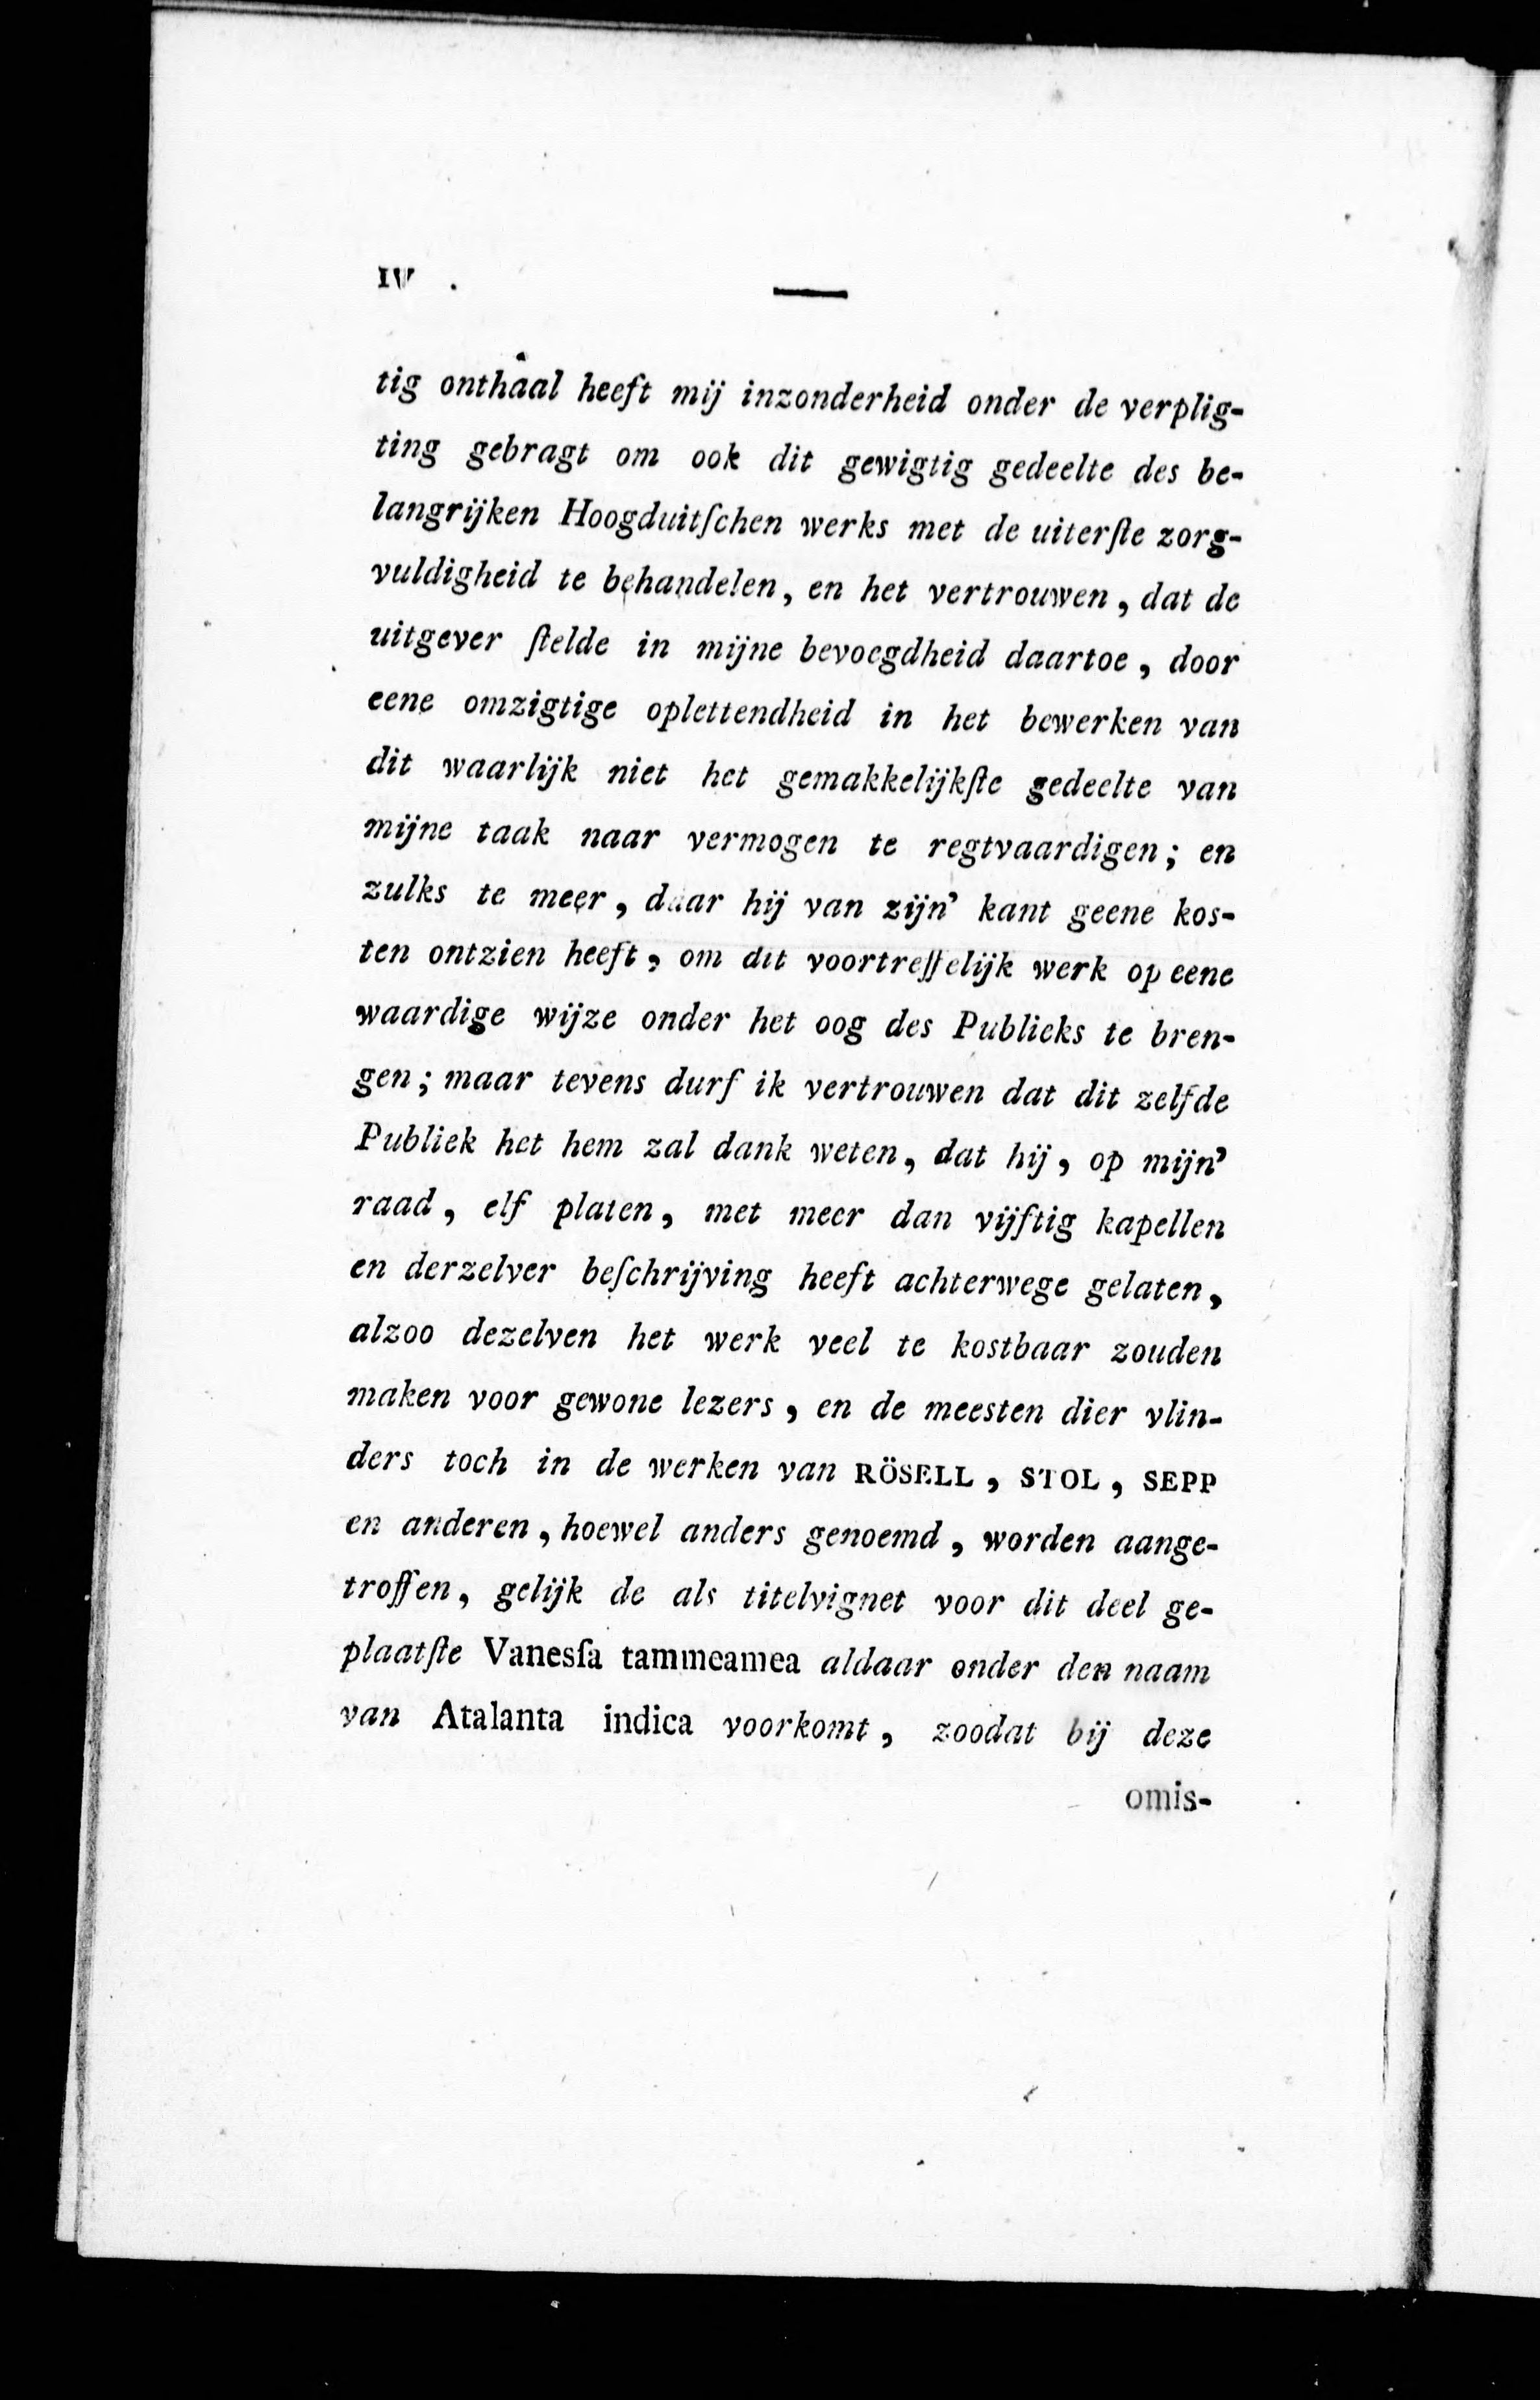 IV
tig onthaal heeft mij inzonderheid onder de verplig-
ting gebragt om ook dit gewigtig gedeelte des be-
langrijken Hoogduitſchen werks met de uiterſte zorg-
vuldigheid te behandelen, en het vertrouwen, dat de
uitgever ſtelde in mijne bevoegdheid daartoe, door
eene omzigtige oplettendheid in het bewerken van
dit waarlijk niet het gemakkelijkſte gedeelte van
mijne taak naar vermogen te regtvaardigen; en
zulks te meer, daar hij van zijn' kant geene kos-
ten ontzien heeft, om dit voortreffelijk werk op eene
waardige wijze onder het oog des Publieks te bren-
gen; maar tevens durf ik vertrouwen dat dit zelfde
Publiek het hem zal dank weten, dat hij, op mijn'
raad, elf platen, met meer dan vijftig kapellen
en derzelver beſchrijving heeft achterwege gelaten,
alzoo dezelven het werk veel te kostbaar zouden
maken voor gewone lezers, en de meesten dier vlin-
ders toch in de werken van RÖSELL, STOL, SEPP
en anderen, hoewel anders genoemd, worden aange-
troffen, gelijk de als titelvignet voor dit deel ge-
plaatſte Vanesſa tammeamea aldaar onder den naam
van Atalanta indica voorkomt, zoodat bij deze
omis-